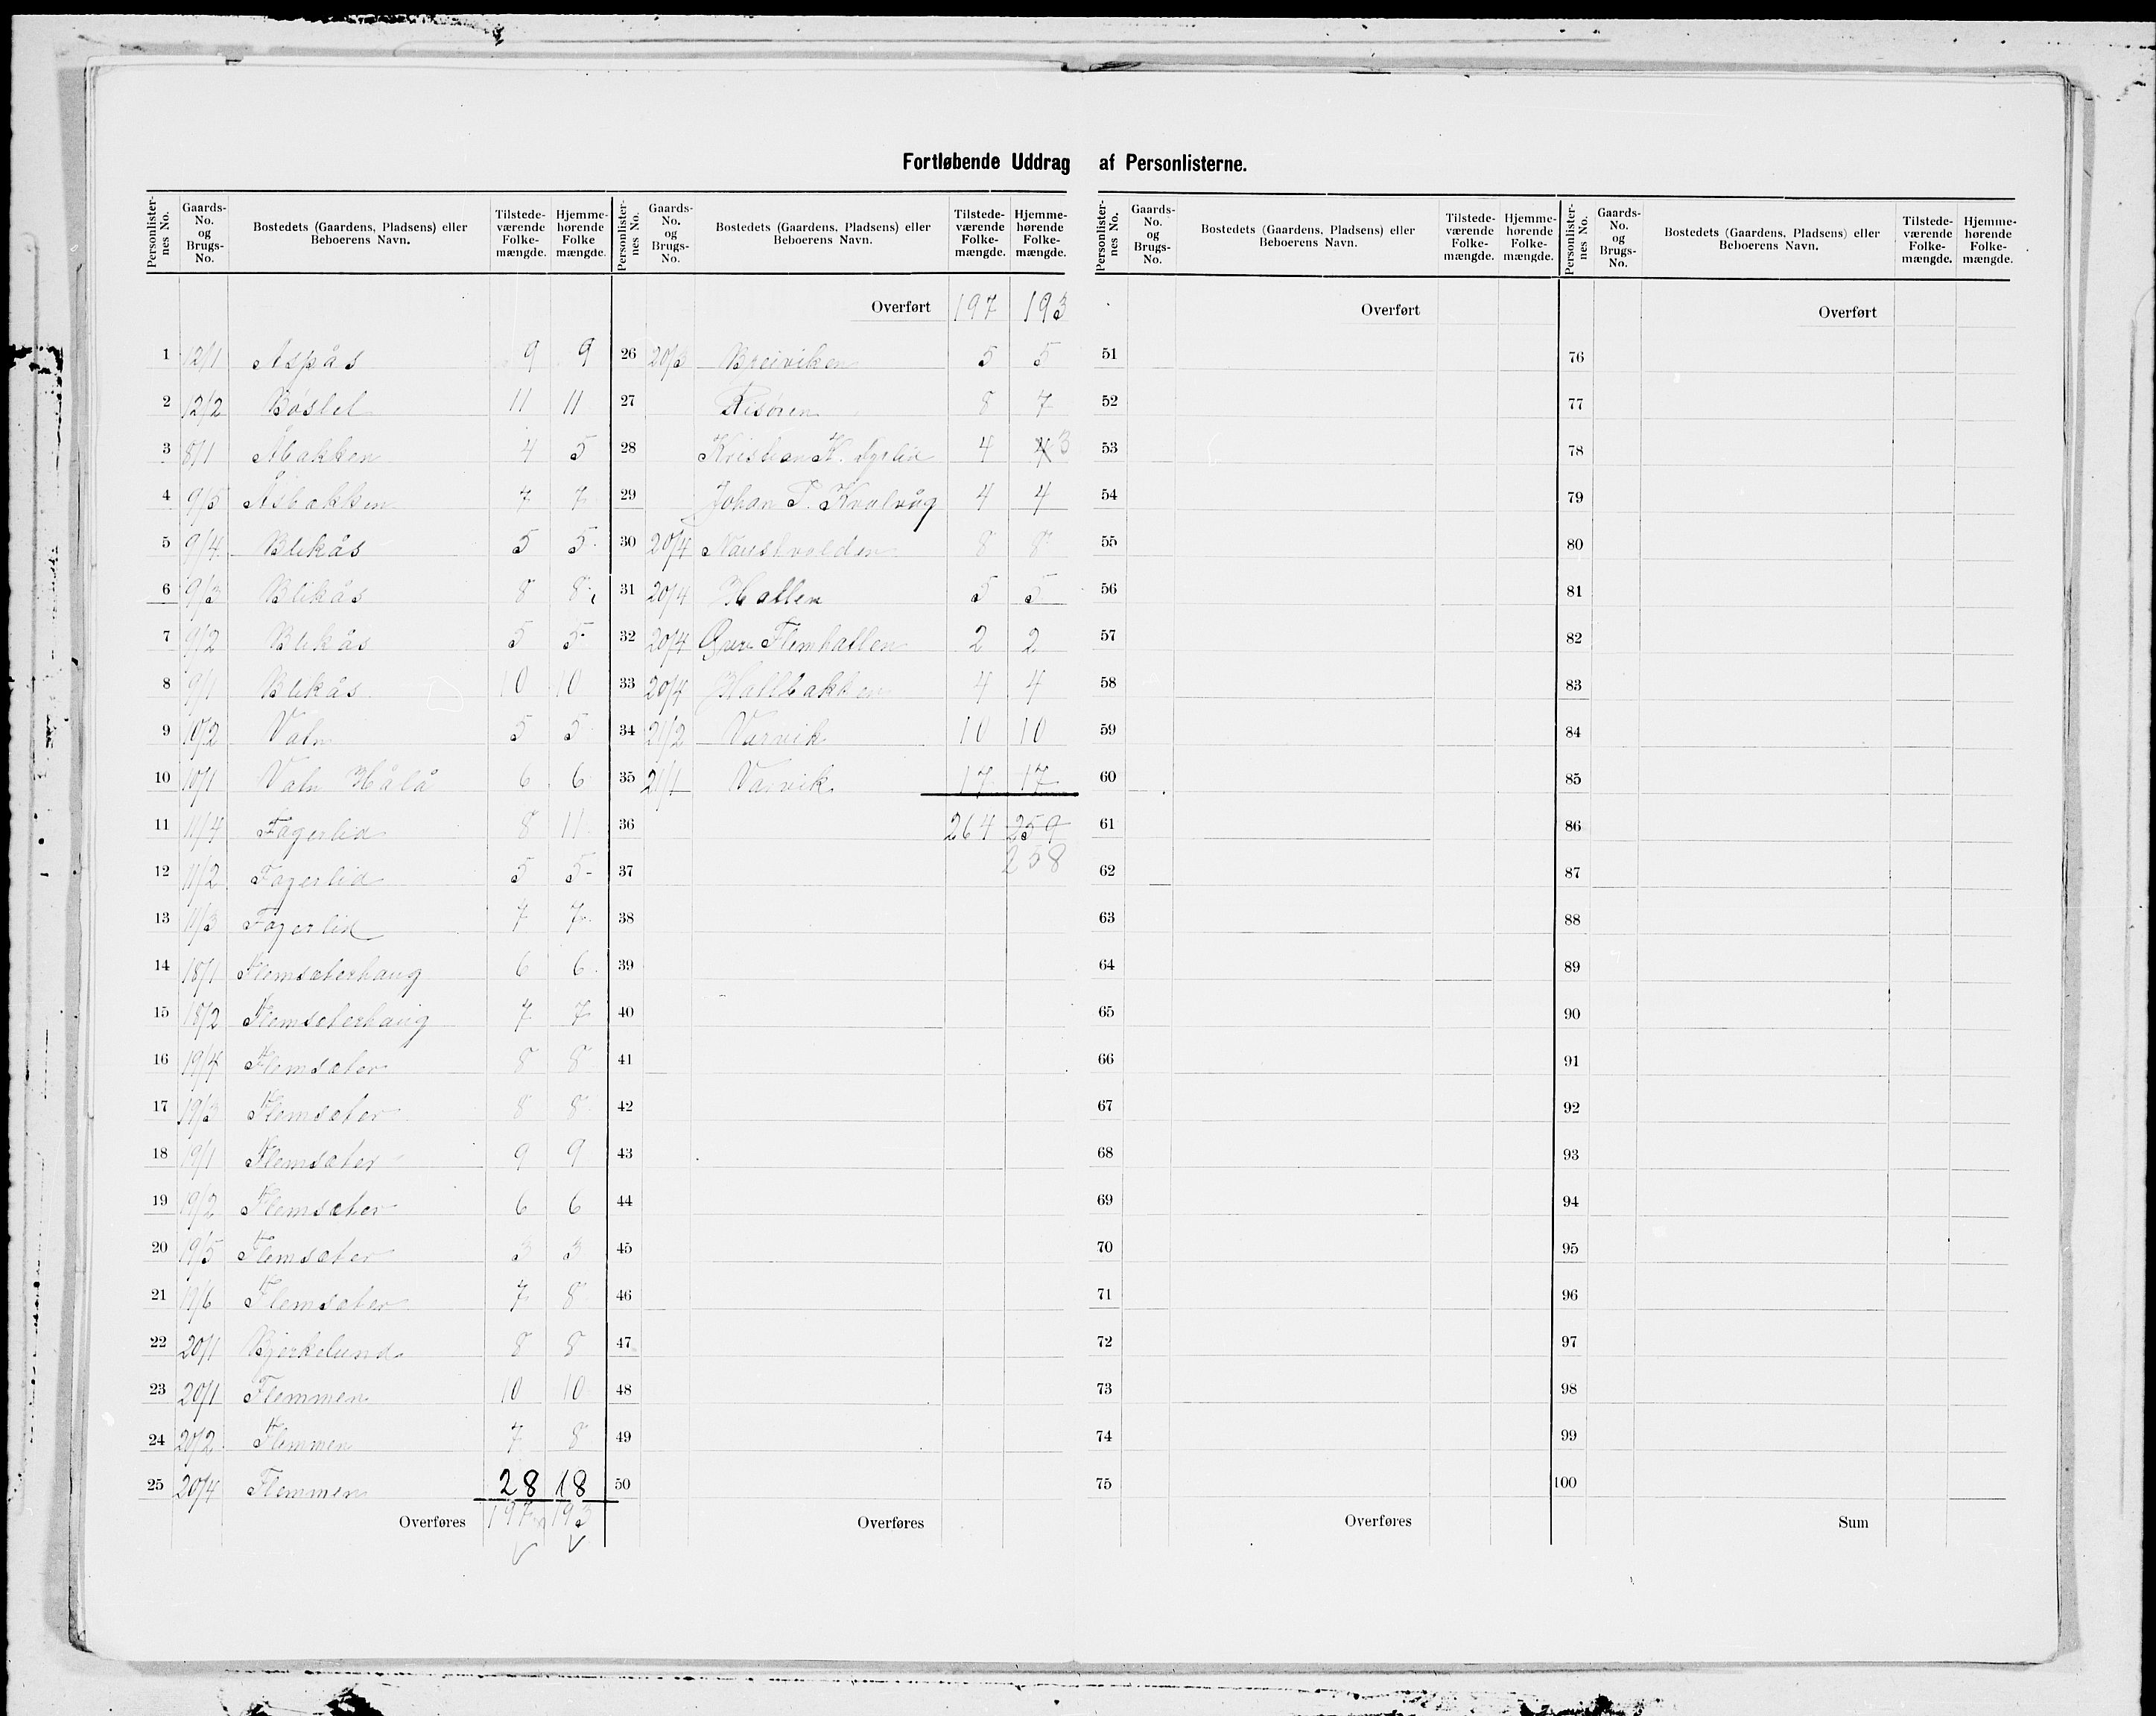 Fortløbende Uddrag af Personlisterne.
Personlister-nes No. Gaards-No. og Brugs-No. Bostedets (Gaardens, Pladsens) eller Beboerens Navn. Tilstede-værende Folke-mængde. Hjemme-hørende Folke mængde.
1 12/1 Aspås 9 9
2 12/2 Böslet 11 11
3 8/1 Åbakken 4 5
4 9/5 Åsbakken 7 7
5 9/4 Blikås 5 5
6 9/3 Blikås 8 8
7 9/2 Blikås 5 5
8 9/1 Blikås 10 10
9 10/2 Valn 5 5
10 10/1 Valn Hålå 6 6
11 11/4 Fagerlid 8 11
12 11/2 Fagerlid 5 5
13 11/3 Fagerlid 7 7
14 18/1 Flemsæterhaug 6 6
15 18/2 Flemsæterhaug 7 7
16 19/4 Flemsæter 8 8
17 19/3 Flemsæter 8 8
18 19/1 Flemsæter 9 9
19 19/2 Flemsæter 6 6
20 19/5 Flemsæter 3 3
21 19/6 Flemsæter 7 8
22 20/1 Bjerkelund 8 8
23 20/1 Flemmen 10 10
24 20/2 Flemmen 7 8
25 20/4 Flemmen 28 18
Overføres 197 193
Personlister-nes No. Gaards-No. og Brugs-No. Bostedets (Gaardens, Pladsens) eller Beboerens Navn. Tilstede-værende Folke-mængde. Hjemme-hørende Folke-mængde.
Overført 197 193
26 20/3 Breiviken 5 5
27 Risören 8 7
28 Kristian K. 4 4 3
29 Johan P. Kvalvåg 4 4
30 20/4 Naustvolden 8 8
31 20/4 Hallen 5 5
32 20/4 Flemhallen 2 2
33 20/4 Hallbakken 4 4
34 21/2 Varvik 10 10
35 21/1 Varvik 17 17
36 264 259
37 258
38
39
40
41
42
43
44
45
46
47
48
49
50
Overføres
Personlister-nes No. Gaards-No. og Brugs-No. Bostedets (Gaardens, Pladsens) eller Beboerens Navn. Tilstede-værende Folke-mængde. Hjemme-hørende Folke-mængde.
Overført
51
52
53
54
55
56
57
58
59
60
61
62
63
64
65
66
67
68
69
70
71
72
73
74
75
Overføres
Personlister-nes No. Gaards-No. og Brugs-No. Bostedets (Gaardens, Pladsens) eller Beboerens Navn. Tilstede-værende Folke-mængde. Hjemme-hørende Folke-mængde.
Overført
76
77
78
79
80
81
82
83
84
85
86
87
88
89
90
91
92
93
94
95
96
97
98
99
100
Sum